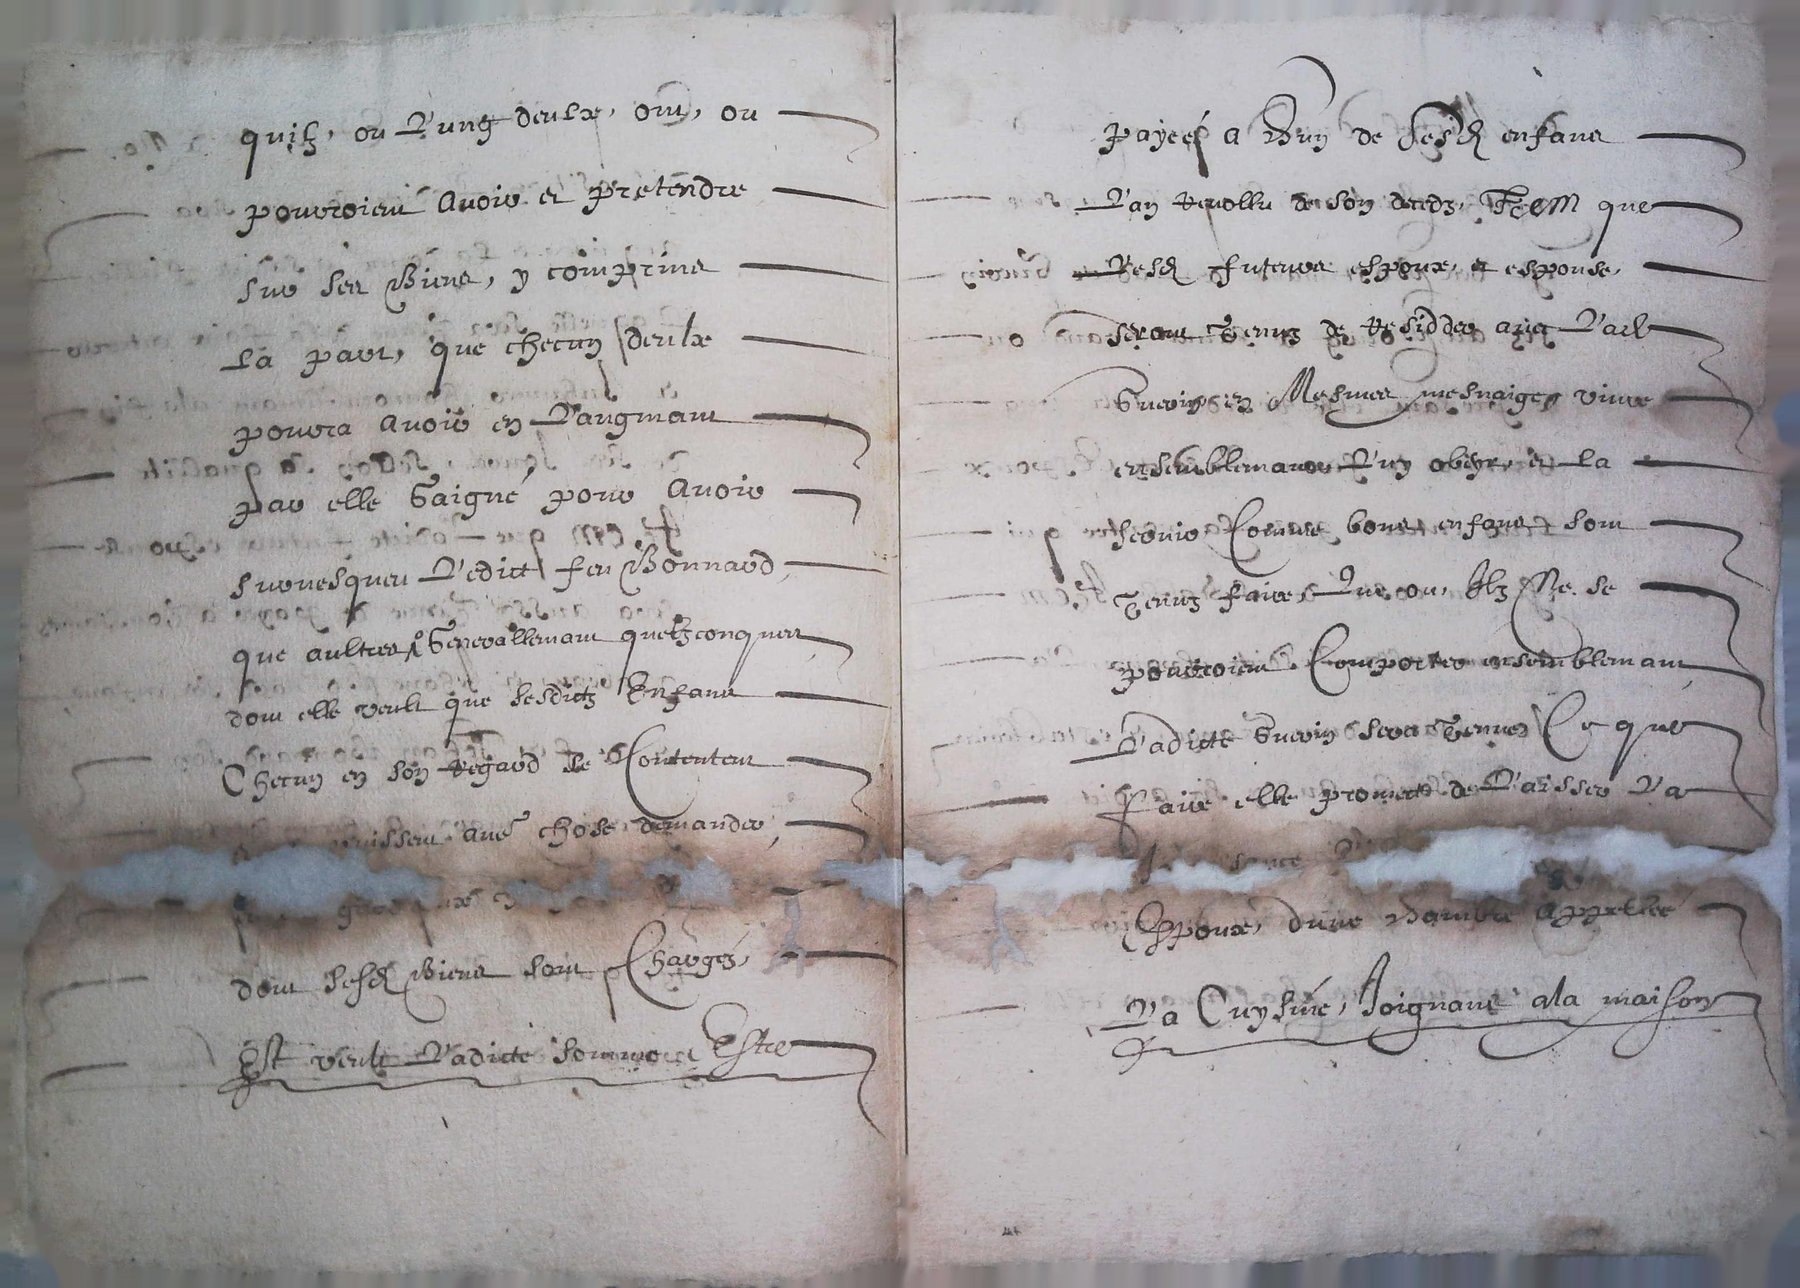 quilz, ou l'ung deulx, ont, ou
pourroient avoir et pretendre
sur ses biens, y comprins
la part, que checun deulx
pourra avoir en l'augmant
par elle gaigné pour avoir
survesqueu ledict feu Bonnard,
que aultres generallemant quelzconques
dont elle veult que lesdictz enfans
Checun en son regard se contentent
puissent autre chose demander,
dont sesd biens sont charges,
Est veult ladicte somme Estre
payees a ung de sesd enfans
l'an revollu de son decedz, Item que
lesd futeurs espoux, et espouse,
seront tenuz de residder avec lad
Guerin en mesmes mesnaiges vivre
ensemblemant luy obeyr, et la
servir Comme bons enfans sont
tenuz faire, Que ou, Ilz Ne se
pourroient Comporter ensemblemant
Ladicte Guerin sera tenue Ce que
faire elle promect de laisser la
Espoux, dune chambre appellee
La Cuysine, Joignant a la maison